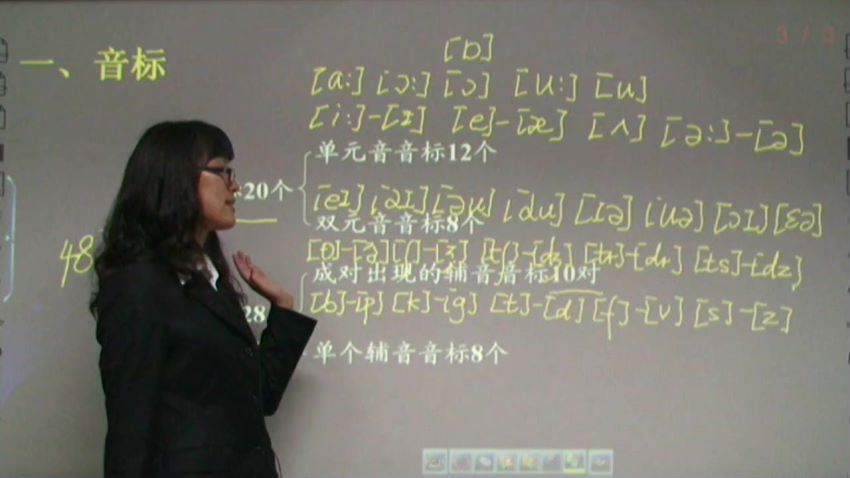 3 / 3
一、音标
[ɒ]
[a:] [ɔ:] [ɔ] [u:] [u]
[i:]-[ɪ] [e]-[æ] [ʌ] [ə:]-[ə]
单元音音标12个
20个
[eɪ] [aɪ] [əu] [au] [ɪə] [uə] [ɔɪ] [ɛə]
双元音音标8个
48
[θ]-[ð] [ʃ]-[ʒ] [tʃ]-[dʒ] [tr]-[dr] [ts]-[dz]
成对出现的辅音音标10对
28
[b]-[p] [k]-[g] [t]-[d] [f]-[v] [s]-[z]
单个辅音音标8个